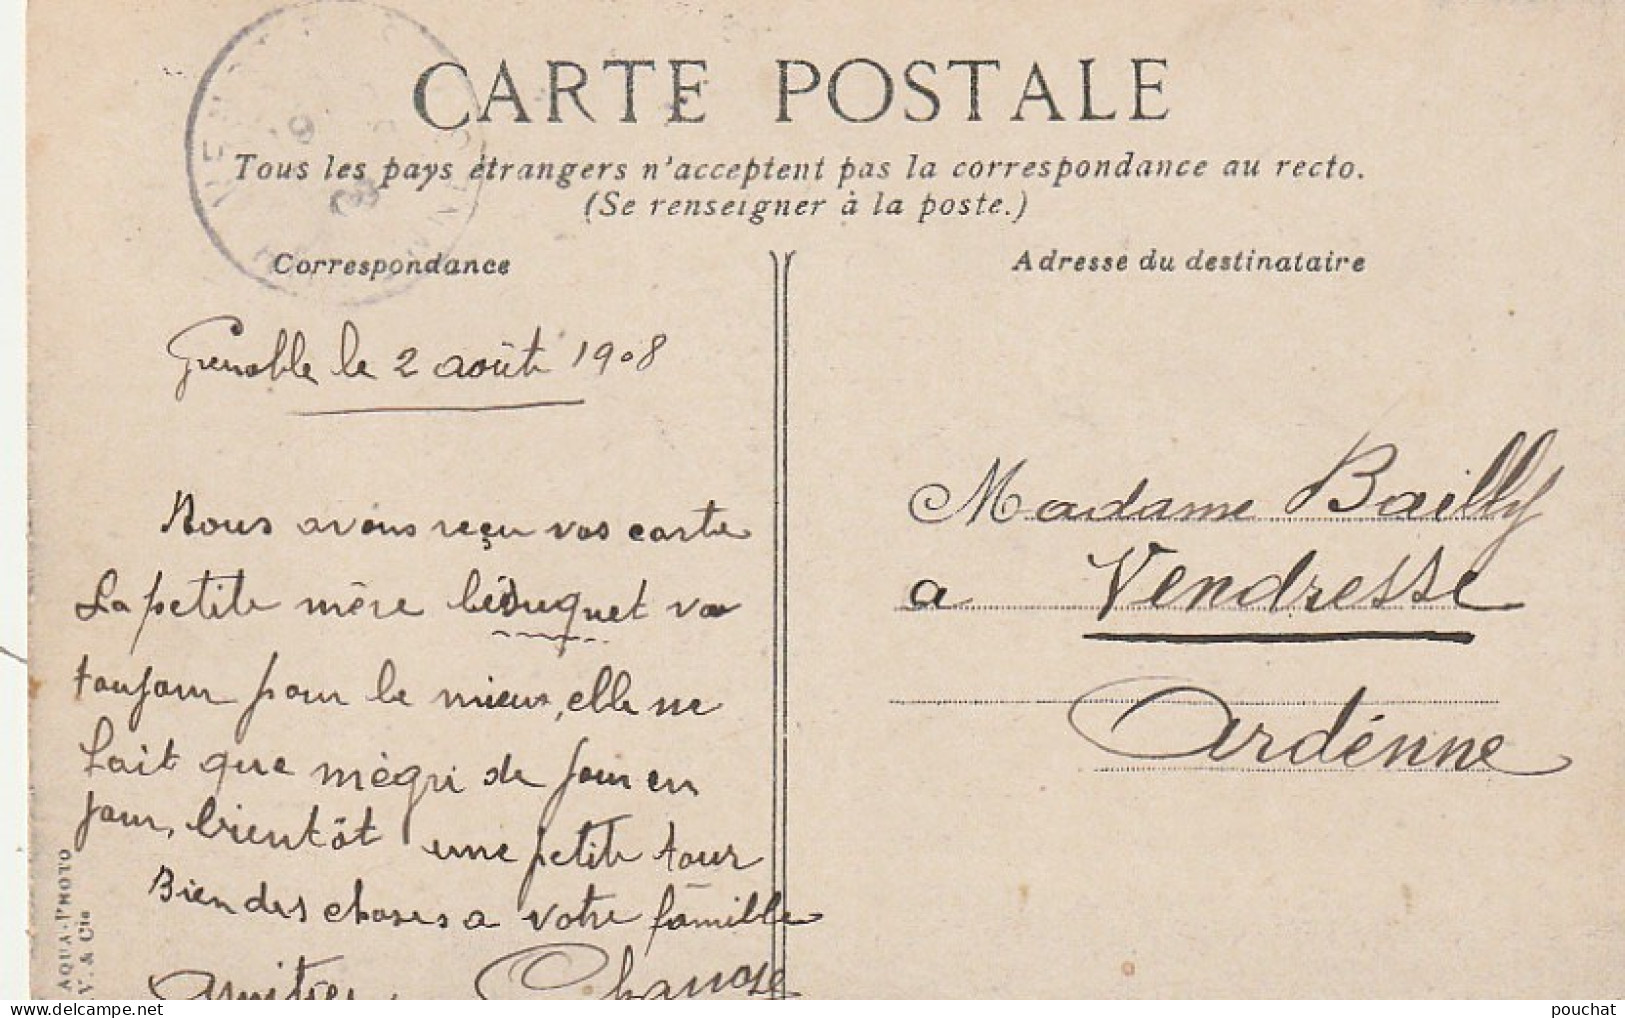 CARTE POSTALE
Tous les pays étrangers n'acceptent pas la correspondance au recto.
(Se renseigner à la poste.)
Correspondance
Adresse du destinataire
Grenoble le 2 août 1908
Nous avons reçu vos carte
La petite mère va
toujour pour le mieux, elle ne
fait que mègri de jour en
jour, bientôt une petite tour
Bien des choses a votre famille
Amitiés
Madame Bailly
a Vendresse
Ardénne
AQUA-PHOTO
.V. & Cie
pouchat